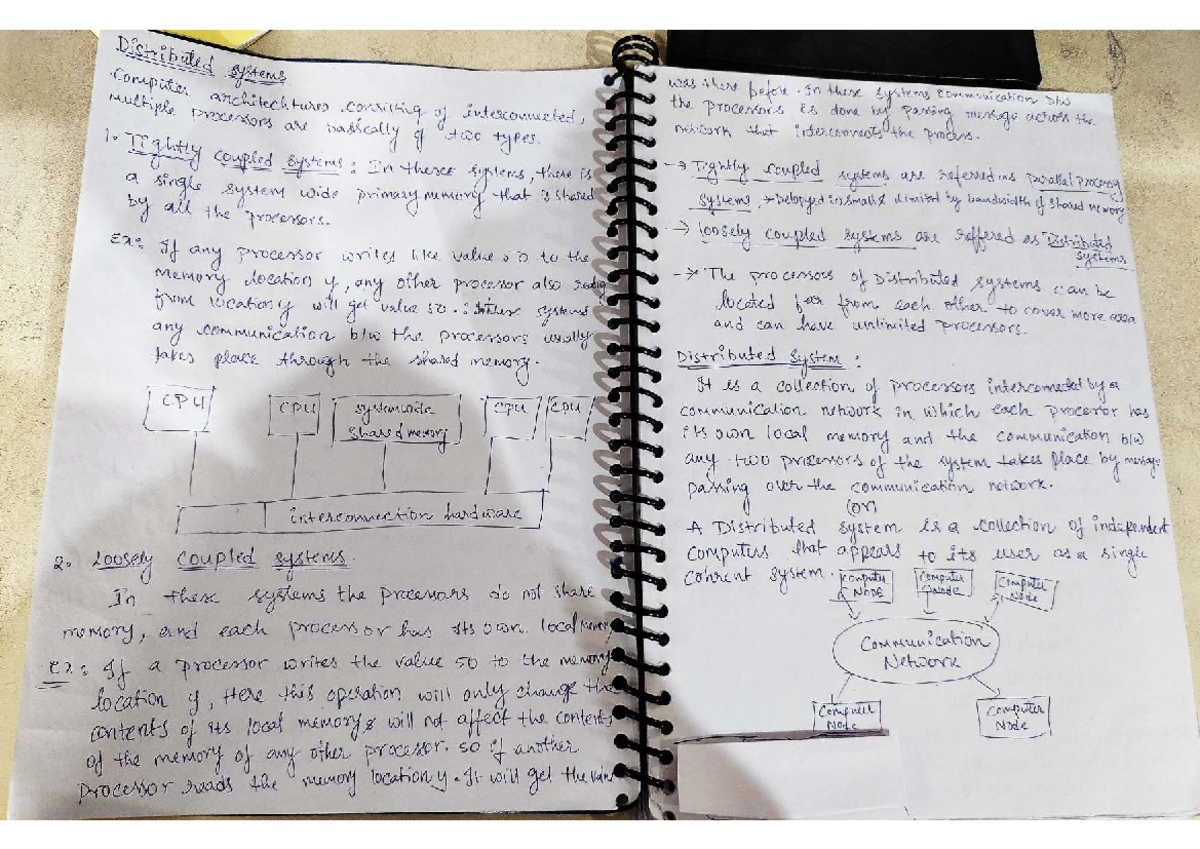 Distributed systems
Computer architechtures consisting of interconnected,
multiple processors are basically of two types.
1. Tightly coupled systems: In these systems, there is
a single system wide primary memory that is shared
by all the processors.
Ex: If any processor writes like value 50 to the
memory location y, any other processor also
from location y will get value 50. systems
any communication b/w the processors usually
takes place through the shared memory.
CPU
CPU
systemwide
shared memory
CPU
CPU
interconnection hardware
2. Loosely coupled systems.
In these systems the processors do not share
memory, and each processor has its own local memory
Ex: If a processor writes the value 50 to the memory
location y, Here this operation will only change the
contents of its local memory & will not affect the contents
of the memory of any other processor. so if another
processor reads the memory location y. It will get the value
was there before. In these systems communication b/w
the processors is done by passing message across the
network that interconnects the process.
→ Tightly coupled systems are referred as parallel processing
systems → in small & limited by bandwidth of shared memory
→ loosely coupled systems are reffered as Distributed
systems
→ The processors of Distributed systems can be
located far from each other to cover more area
and can have unlimited processors.
Distributed system:
It is a collection of processors interconnected by a
communication network in which each processor has
its own local memory and the communication b/w
any two processors of the system takes place by message
passing over the communication network.
(or)
A Distributed system is a collection of independent
computers that appears to its user as a single
cohrent system.
Computer
NODE
Computer
NODE
Computer
Node
Communication
Network
Computer
Node
Computer
Node